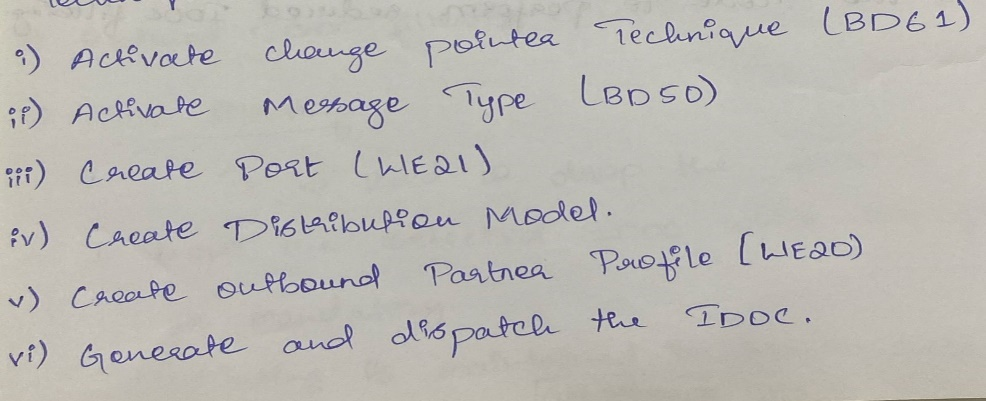 i) Activate change pointer Technique (BD61)
ii) Activate Message Type (BD50)
iii) Create Port (WE21)
iv) Create Distribution Model.
v) Create outbound Partner Profile [WE20)
vi) Generate and dispatch the IDOC.